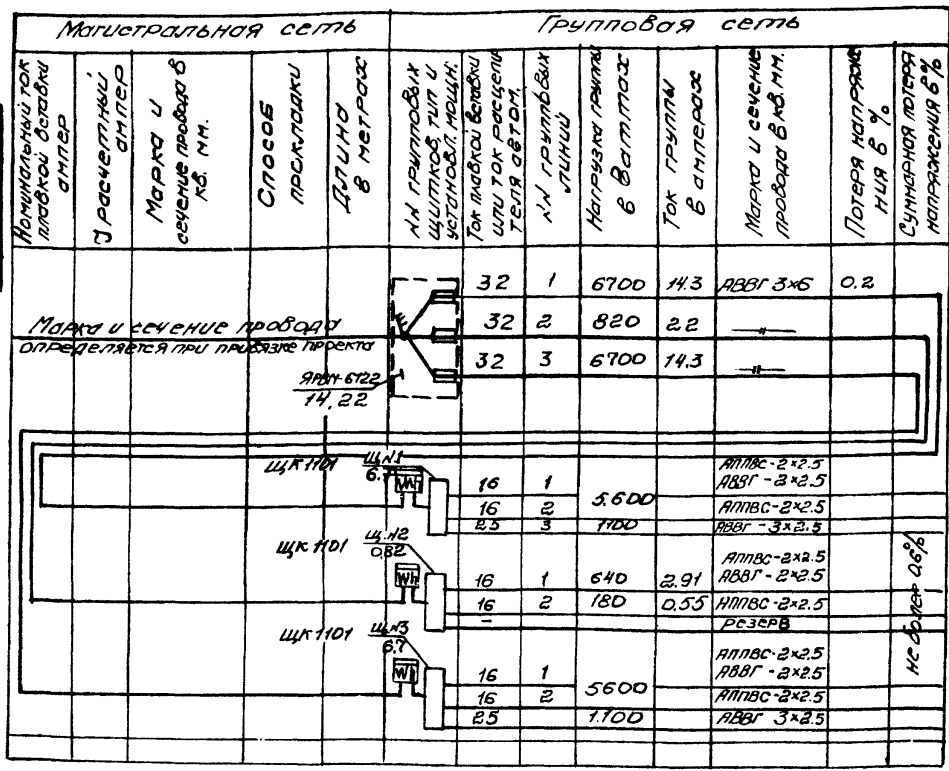 Магистральная сеть
Групповая сеть
Номинальный ток
плавкой вставки
ампер
Ј расчетный
ампер
Марка и
сечение провода в
кв. мм.
Способ
прокладки
Длина
в метрах
NN групповых
щитков, тип и
установл. мощн.
Ток плавкой вставки
или ток расцепи
теля автом.
NN групповых
линий
Нагрузка группы
в Ваттах
Ток группы
в амперах
Марка и сечение
провода в кв. мм.
Потеря напряже
ния в %
Суммарная потеря
напряжения в %
32 1 6700 14.3 АВВГ 3×6 0.2
Марка и сечение провода
определяется при привязке проекта
32 2 820 22 —"—
32 3 6700 14.3 —"—
ЯРВН-6122
14.22
ЩК 1101 Щ.N1
6.7
Wh
АППВС-2×2.5
16 1 АВВГ-2×2.5
5.600
16 2 АППВС-2×2.5
25 3 1100 АВВГ-3×2.5
ЩК 1101 Щ.N2
0.82
Wh
АППВС-2×2.5
16 1 640 2.91 АВВГ-2×2.5
16 2 180 0.55 АППВС-2×2.5
– резерв
ЩК 1101 Щ.N3
6.7
Wh
АППВС-2×2.5
16 1 АВВГ-2×2.5
5600
16 2 АППВС-2×2.5
25 1.100 АВВГ 3×2.5
не более 0.6%